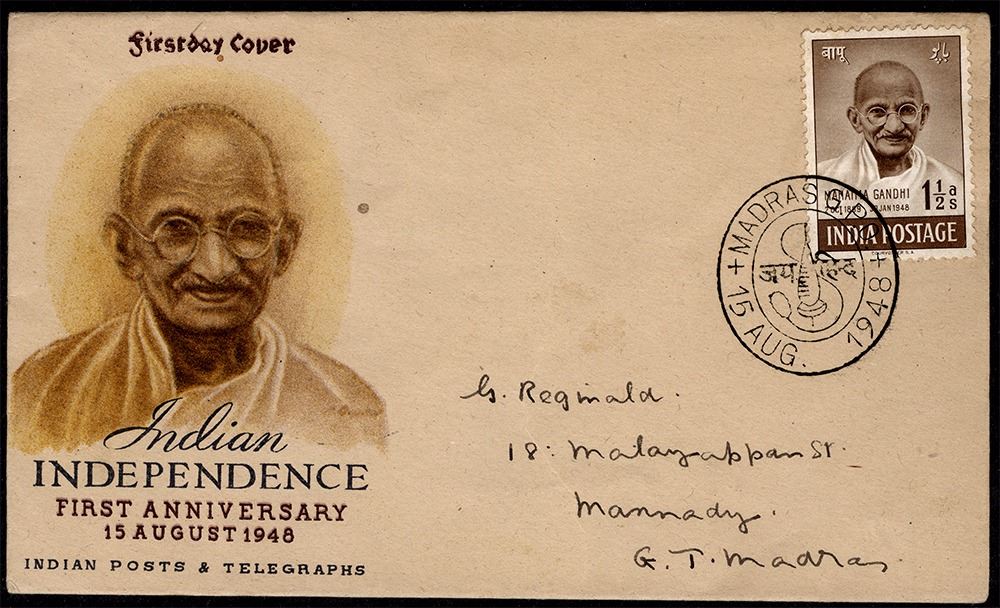 Firstday Cover
बापू
باپو
MAHATMA GANDHI
2 OCT 1869 30 JAN 1948
1 1/2 as
INDIA POSTAGE
MADRAS G.P.O.
जय हिन्द
15 AUG. 1948
G. Reginald.
18. Malayappan St.
Mannady.
G. T. Madras.
Indian
INDEPENDENCE
FIRST ANNIVERSARY
15 AUGUST 1948
INDIAN POSTS & TELEGRAPHS